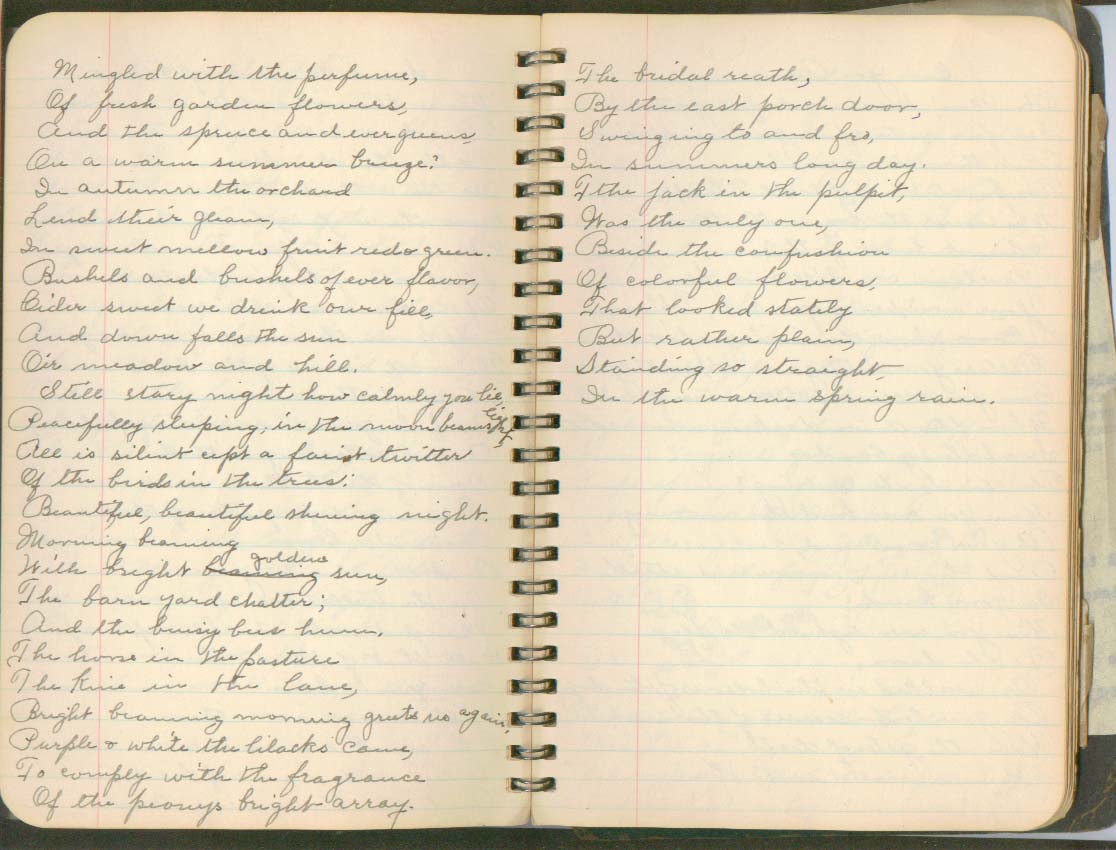 Mingled with the perfume,
Of fresh garden flowers,
And the spruce and evergreens
On a warm summer breeze?
In autumn the orchard
Lend their gleam,
In sweet mellow fruit red & green.
Bushels and bushels of ever flavor,
Cider sweet we drink our fill,
And down falls the sun
O'ir meadow and hill.
Still stary night how calmly you lie
Peacefully sleeping, in the moon beams light,
All is silint cept a faint twitter
Of the birds in the trees.
Beautiful, beautiful shining night.
Morning beaming
With bright beaming golden sun,
The barn yard chatter;
And the buisy bees hum.
The horse in the pasture
The kine in the lane,
Bright beaming morning greets us again.
Purple & white the lilacks came,
To comply with the fragrance
Of the peonys bright array.
The bridal reath,
By the east porch door,
Swinging to and fro,
In summers long day.
Tthe jack in the pulpit,
Was the only one,
Beside the confushion
Of colorful flowers,
That looked stately
But rather plain,
Standing so straight
In the warm spring rain.